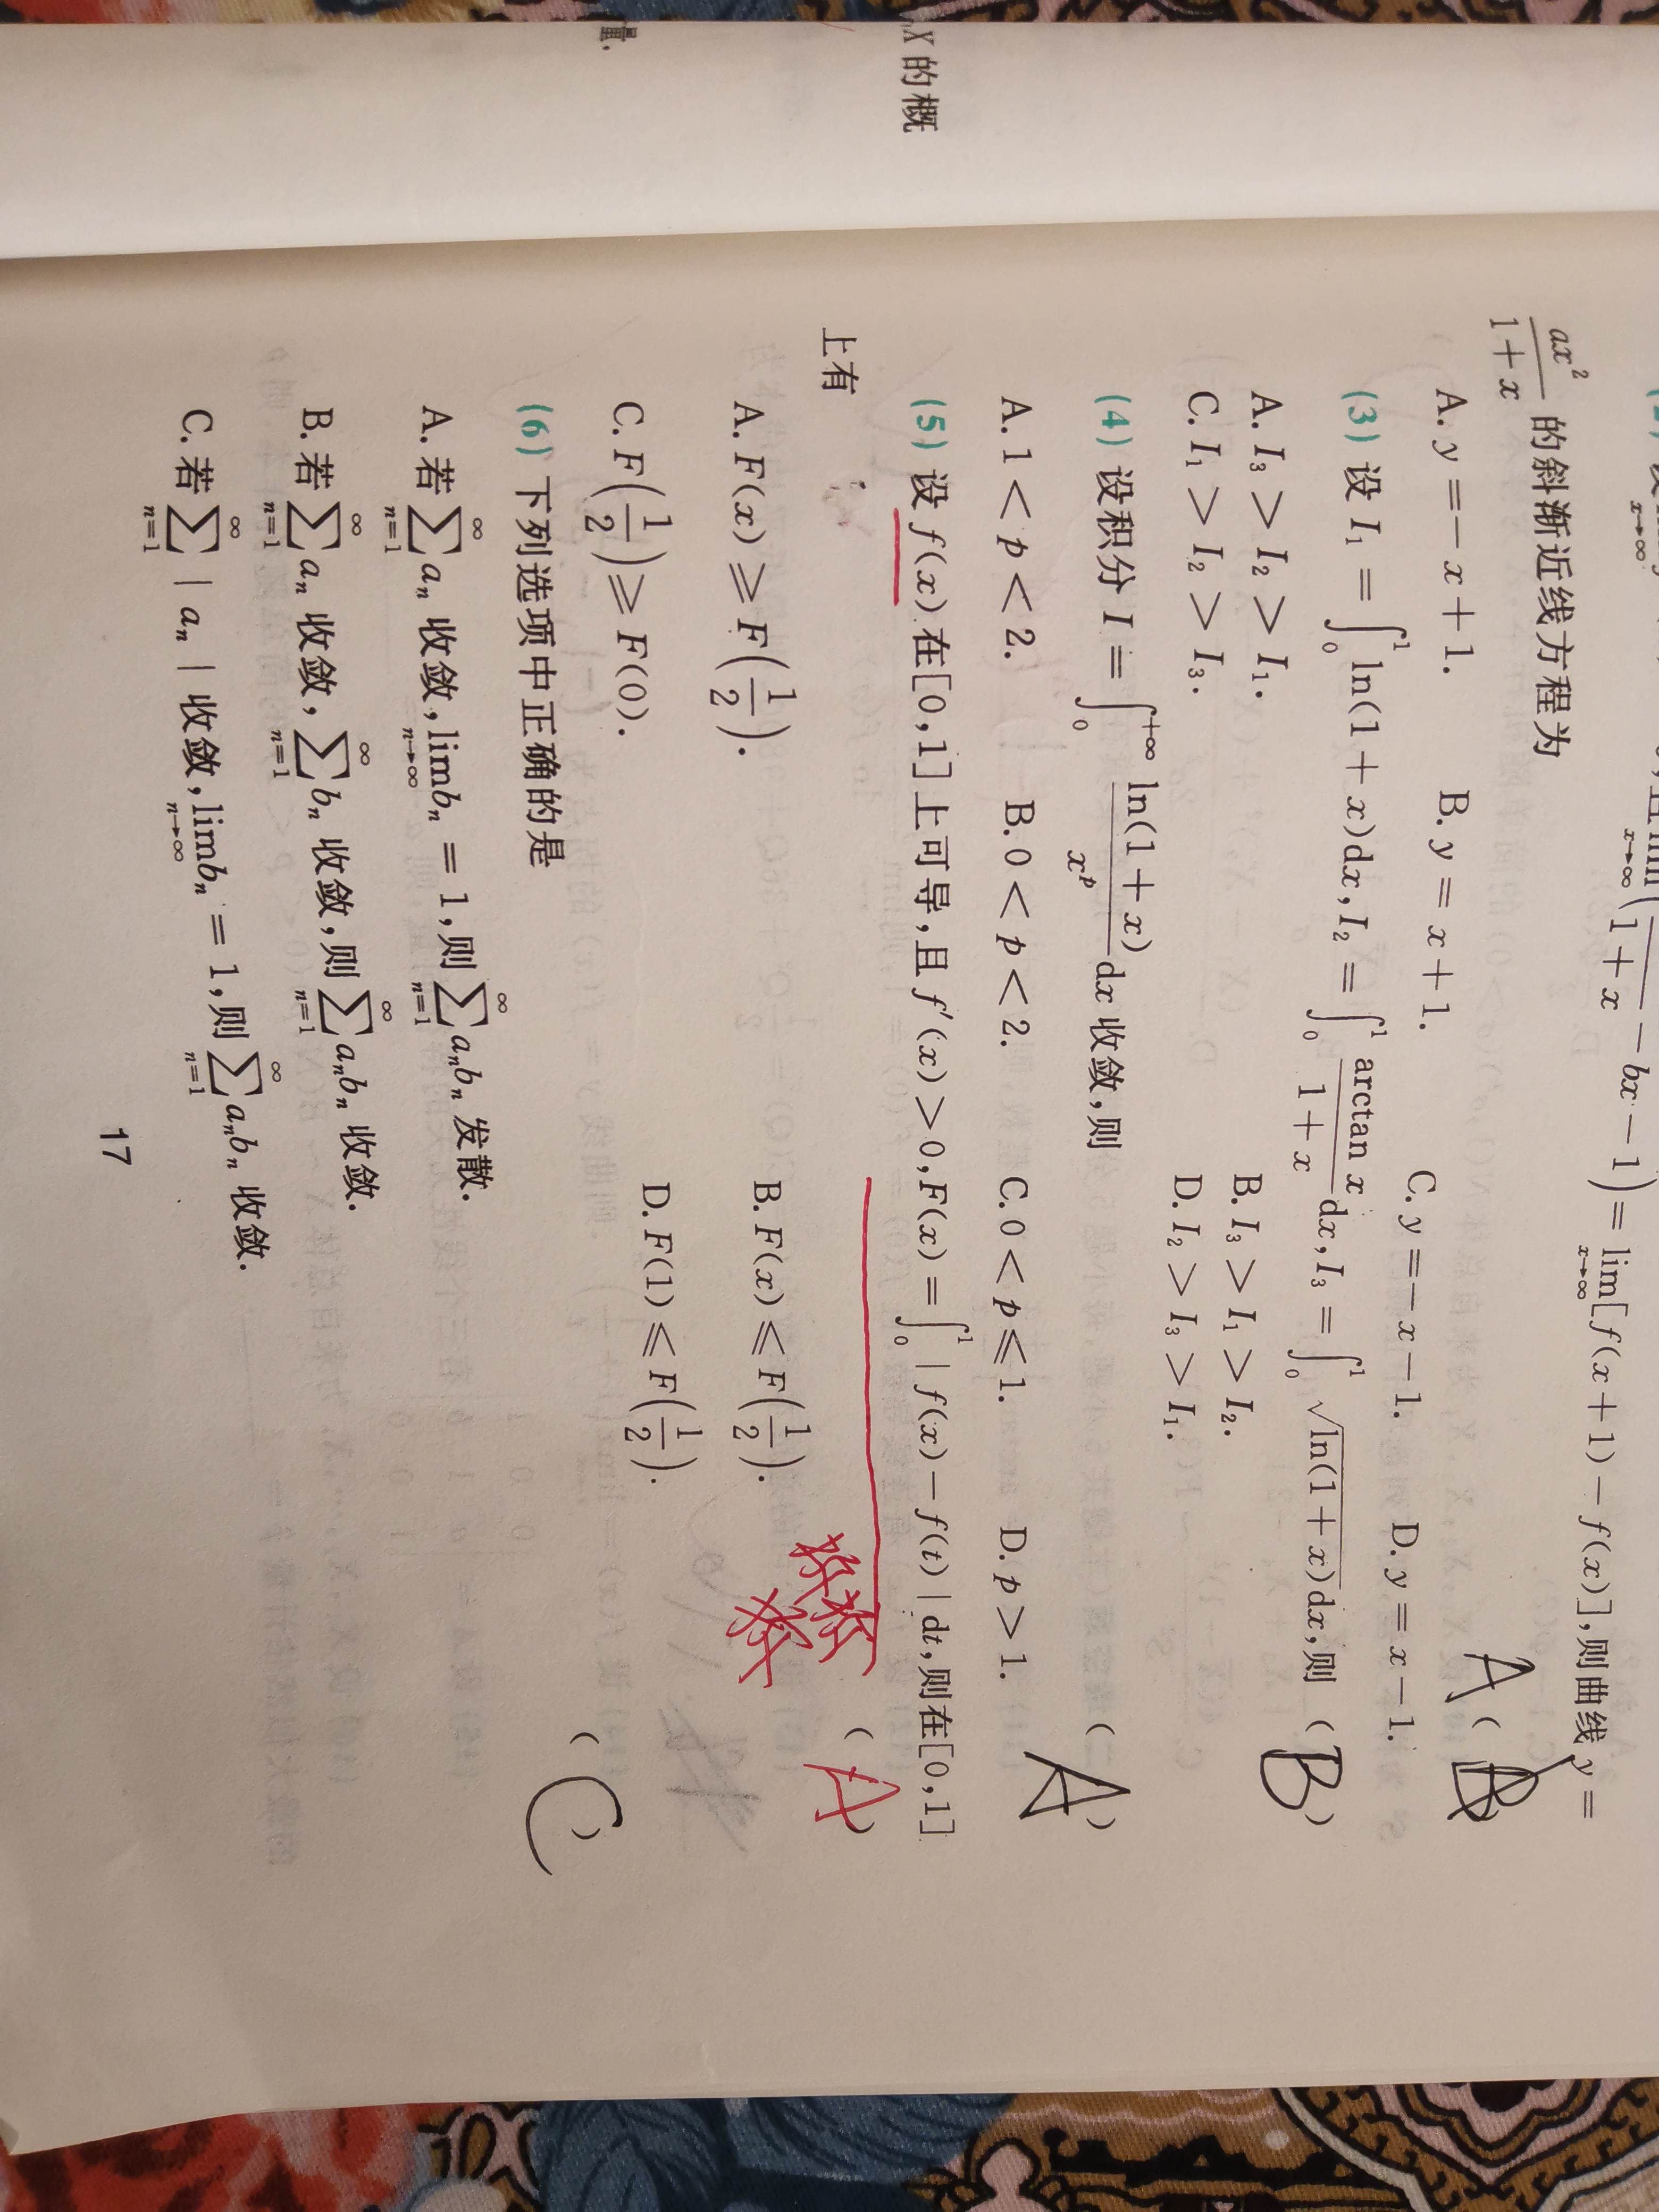 量.
X 的概
lim(‾1+x − bx − 1) = lim[f(x+1) − f(x)],则曲线 y =
x→∞ x→∞
ax²/(1+x) 的斜渐近线方程为 A ( B
A. y = − x + 1. B. y = x + 1. C. y = − x − 1. D. y = x − 1.
(3) 设 I₁ = ∫₀¹ ln(1 + x)dx, I₂ = ∫₀¹ arctan x/(1 + x) dx, I₃ = ∫₀¹ √ln(1 + x)dx,则 ( B )
A. I₃ > I₂ > I₁. B. I₃ > I₁ > I₂.
C. I₁ > I₂ > I₃. D. I₂ > I₃ > I₁.
(4) 设积分 I = ∫₀^{+∞} ln(1 + x)/x^p dx 收敛,则 ( A )
A. 1 < p < 2. B. 0 < p < 2. C. 0 < p ⩽ 1. D. p > 1.
(5) 设 f(x) 在[0,1]上可导,且 f′(x) > 0, F(x) = ∫₀¹ | f(x) − f(t) | dt,则在[0,1]
上有 ( A )
A. F(x) ⩾ F(1/2). B. F(x) ⩽ F(1/2).
C. F(1/2) ⩾ F(0). D. F(1) ⩽ F(1/2).
(6) 下列选项中正确的是 ( C )
A. 若 ∑_{n=1}^∞ aₙ 收敛, lim_{n→∞} bₙ = 1,则 ∑_{n=1}^∞ aₙbₙ 发散.
B. 若 ∑_{n=1}^∞ aₙ 收敛, ∑_{n=1}^∞ bₙ 收敛,则 ∑_{n=1}^∞ aₙbₙ 收敛.
C. 若 ∑_{n=1}^∞ | aₙ | 收敛, lim_{n→∞} bₙ = 1,则 ∑_{n=1}^∞ aₙbₙ 收敛.
17